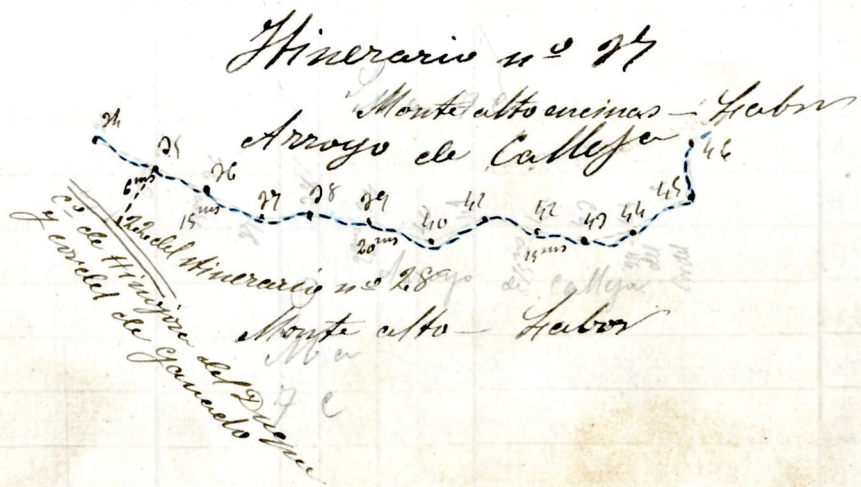 Itinerario nº 37
Monte alto encinas - Labor
Arroyo de Calleja
34
35
36
37
38
39
40
41
42
43
44
45
46
6 ms
15 ms
20 ms
15 ms
22 del itinerario nº 28
Cº de Hinojosa del Duque
y cordel de Ganado
Monte alto - Labor